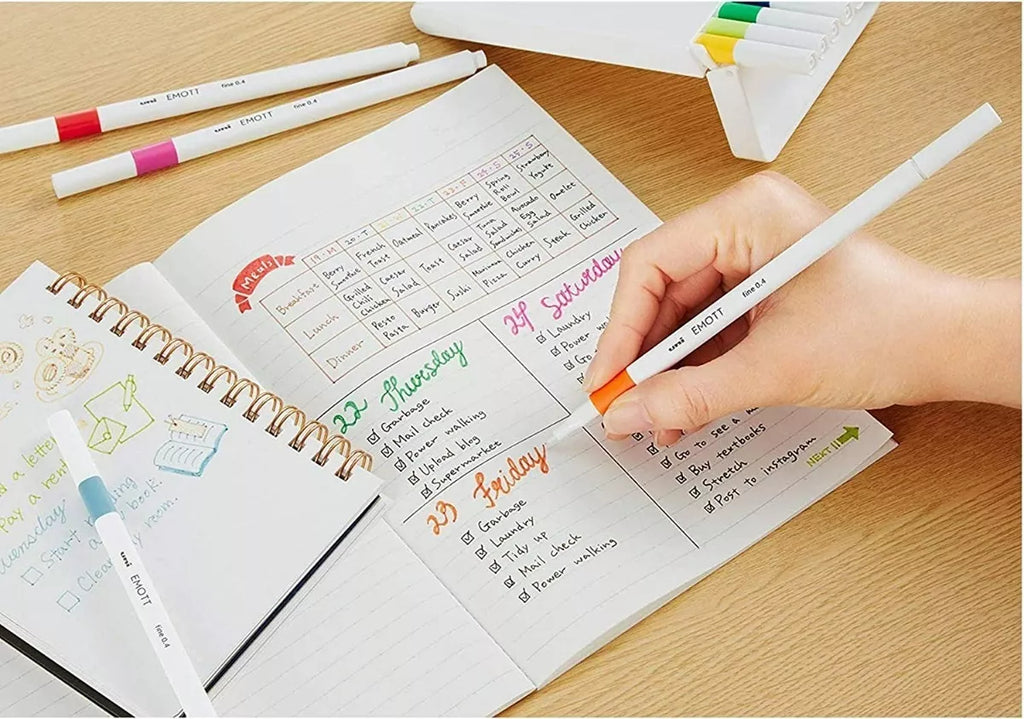 uni EMOTT fine 0.4
uni EMOTT fine 0.4
Meals
19・M 20・T 22・T 23・F 24・S 25・S
Breakfast
Berry Smoothie
French Toast
Oatmeal
Pancakes
Berry Smoothie
Spring Roll Bowl
Strawberry Yogurt
Lunch
Grilled Chili Chicken
Caesar Salad
Toast
Caesar Salad
Tuna Salad Sandwiches
Avocado Egg Salad
Omelet
Dinner
Pesto Pasta
Burger
Sushi
Marinara Pizza
Chicken Curry
Steak
Grilled Chicken
22 Thursday
Garbage
Mail check
Power walking
Upload blog
Supermarket
23 Friday
Garbage
Laundry
Tidy up
Mail check
Power walking
24 Saturday
Laundry
Power
Go
Go to see a
Buy textbooks
Stretch
Post to instagram
NEXT!!
uni EMOTT fine 0.4
a letter
Pay a
Start
Clean
room.
uni EMOTT fine 0.4